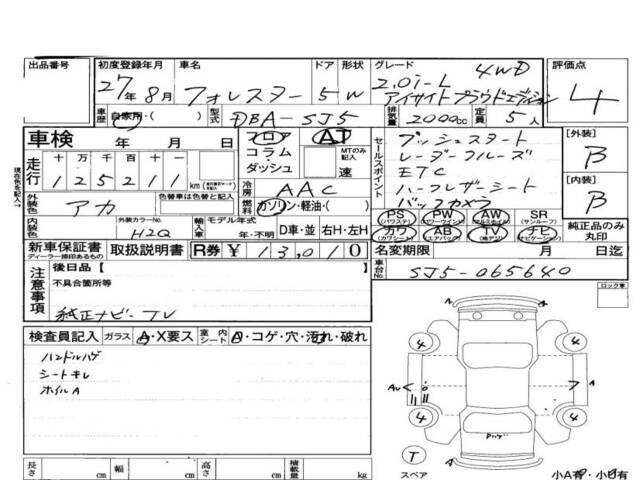 出品番号 初度登録年月 車名 ドア 形状 グレード 評価点
27年 8月 フォレスター 5 W 2.0i-L 4WD
アイサイトプラウドエディション
4
車歴 自家用・( ) 型式 DBA-SJ5 排気量 2000cc 定員 5人
車検 年 月 日 フロア AT
コラム MTのみ記入
ダッシュ 速
セールスポイント
プッシュスタート
レーダークルーズ
ETC
ハーフレザーシート
バックカメラ
[外装]
B
[内装]
B
現在色を記入→
走行 十 万 千 百 十 一
125211 km
冷房 AAC
外装色 アカ 色替車は色替と記入 燃料 ガソリン・軽油・( )
内装色 外装カラーNo. H2Q 輸入車 モデル年式 年・不明 D車・並 右H・左H
PS (パワステ) PW (パワーウインド) AW (アルミホイル) SR (サンルーフ)
カワ (カワシート) AB (エアバッグ) TV (純テレ) ナビ (ナビゲーション)
純正品のみ丸印
新車保証書 ディーラー捺印あるもの 取扱説明書 R券 ¥ 13,010 名変期限 月 日迄
車台No. SJ5-065640
注意事項 後日品 [ ]
不具合箇所等
純正ナビー TV
ロック車
検査員記入 ガラス A・X要ス 室内 シート A・コゲ・穴・汚れ・破れ
ハンドルハゲ
シートキレ
ホイルA
4 4
A
4 4
T
スペア
小A有・小B有
長さ cm 幅 cm 高さ cm 積載量 kg